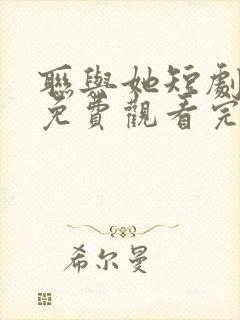 聯與她短劇
免費觀看完
希尔曼